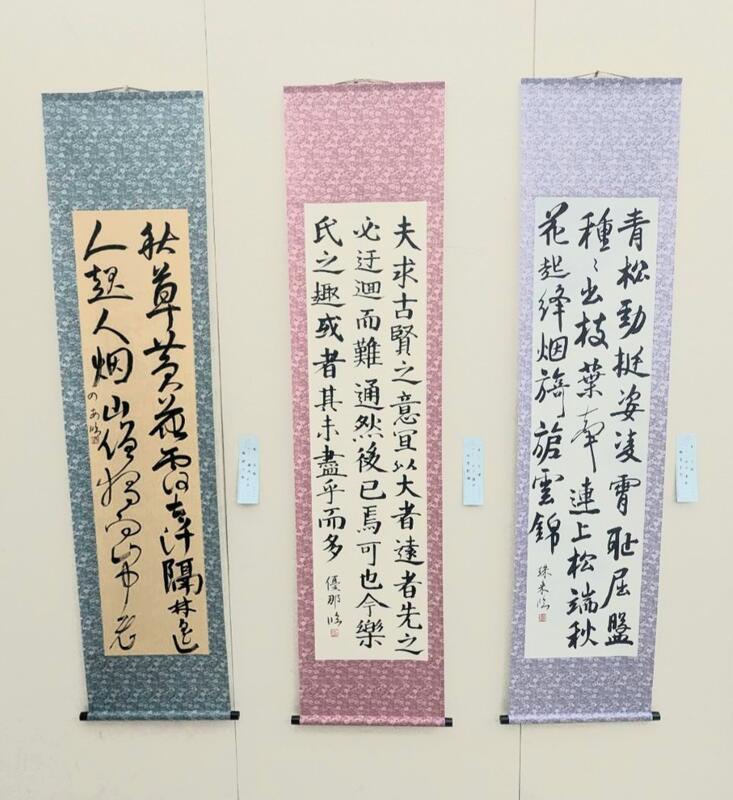 青松勁挺姿凌霄耻屈盤
種〻出枝葉牽連上松端秋
花起絳烟旖旎雲錦
夫求古賢之意宜以大者遠者先之
必迂迴而難通然後已焉可也今樂
氏之趣或者其未盡乎而多
優那臨
秋草黄花覆古阡隔林
起人烟山僧獨在山中老